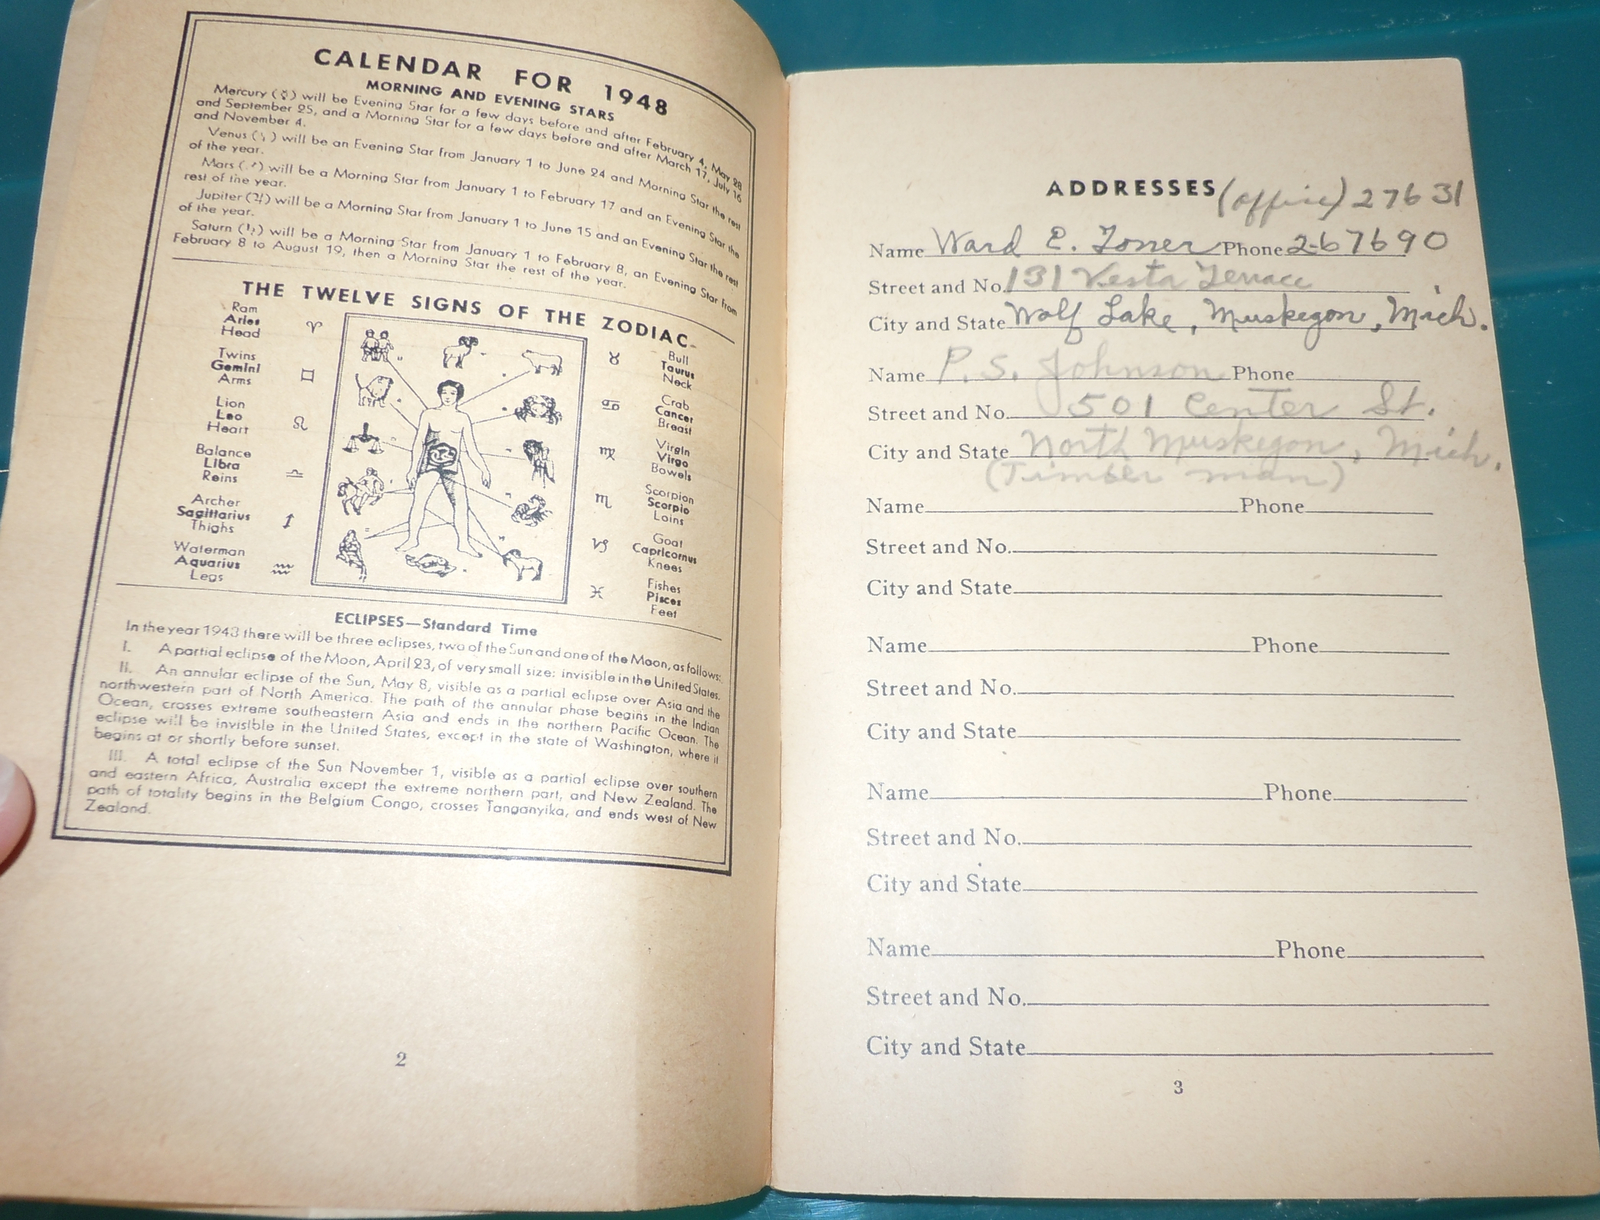 CALENDAR FOR 1948
MORNING AND EVENING STARS
Mercury (☿) will be Evening Star for a few days before and after February 4, May 28
and September 25, and a Morning Star for a few days before and after March 17, July 16
and November 4.
Venus (♀) will be an Evening Star from January 1 to June 24 and Morning Star the rest
of the year.
Mars (♂) will be a Morning Star from January 1 to February 17 and an Evening Star the
rest of the year.
Jupiter (♃) will be a Morning Star from January 1 to June 15 and an Evening Star the rest
of the year.
Saturn (♄) will be a Morning Star from January 1 to February 8, an Evening Star from
February 8 to August 19, then a Morning Star the rest of the year.
THE TWELVE SIGNS OF THE ZODIAC
Ram
Aries
Head
♈
Twins
Gemini
Arms
♊
Lion
Leo
Heart
♌
Balance
Libra
Reins
♎
Archer
Sagittarius
Thighs
♐
Waterman
Aquarius
Legs
♒
♉
Bull
Taurus
Neck
♋
Crab
Cancer
Breast
♍
Virgin
Virgo
Bowels
♏
Scorpion
Scorpio
Loins
♑
Goat
Capricornus
Knees
♓
Fishes
Pisces
Feet
ECLIPSES—Standard Time
In the year 1948 there will be three eclipses, two of the Sun and one of the Moon, as follows:
I. A partial eclipse of the Moon, April 23, of very small size: invisible in the United States.
II. An annular eclipse of the Sun, May 8, visible as a partial eclipse over Asia and the
northwestern part of North America. The path of the annular phase begins in the Indian
Ocean, crosses extreme southeastern Asia and ends in the northern Pacific Ocean. The
eclipse will be invisible in the United States, except in the state of Washington, where it
begins at or shortly before sunset.
III. A total eclipse of the Sun November 1, visible as a partial eclipse over southern
and eastern Africa, Australia except the extreme northern part, and New Zealand. The
path of totality begins in the Belgium Congo, crosses Tanganyika, and ends west of New
Zealand.
2
ADDRESSES (office) 27631
Name Ward E. Toner Phone 2-67690
Street and No. 131 Vesta Terrace
City and State Wolf Lake, Muskegon, Mich.
Name P. S. Johnson Phone
Street and No. 501 Center St.
City and State North Muskegon, Mich.
(Timber man)
Name Phone
Street and No.
City and State
Name Phone
Street and No.
City and State
Name Phone
Street and No.
City and State
Name Phone
Street and No.
City and State
3